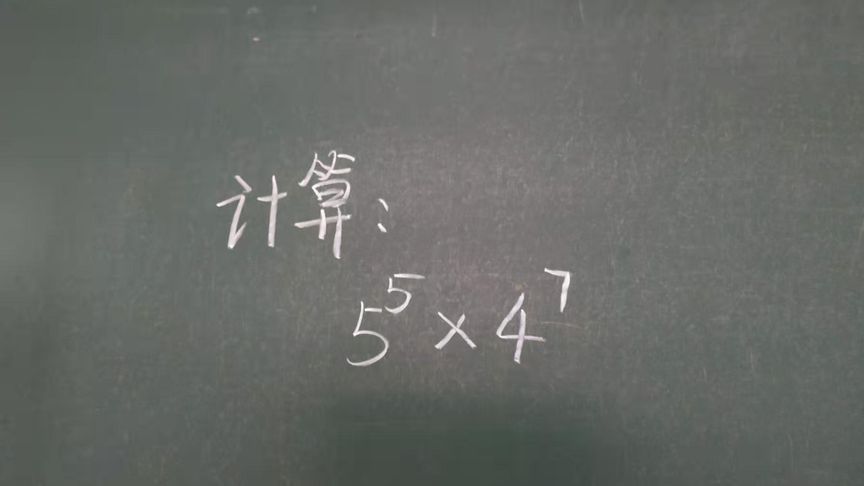 计算：
5⁵×4⁷